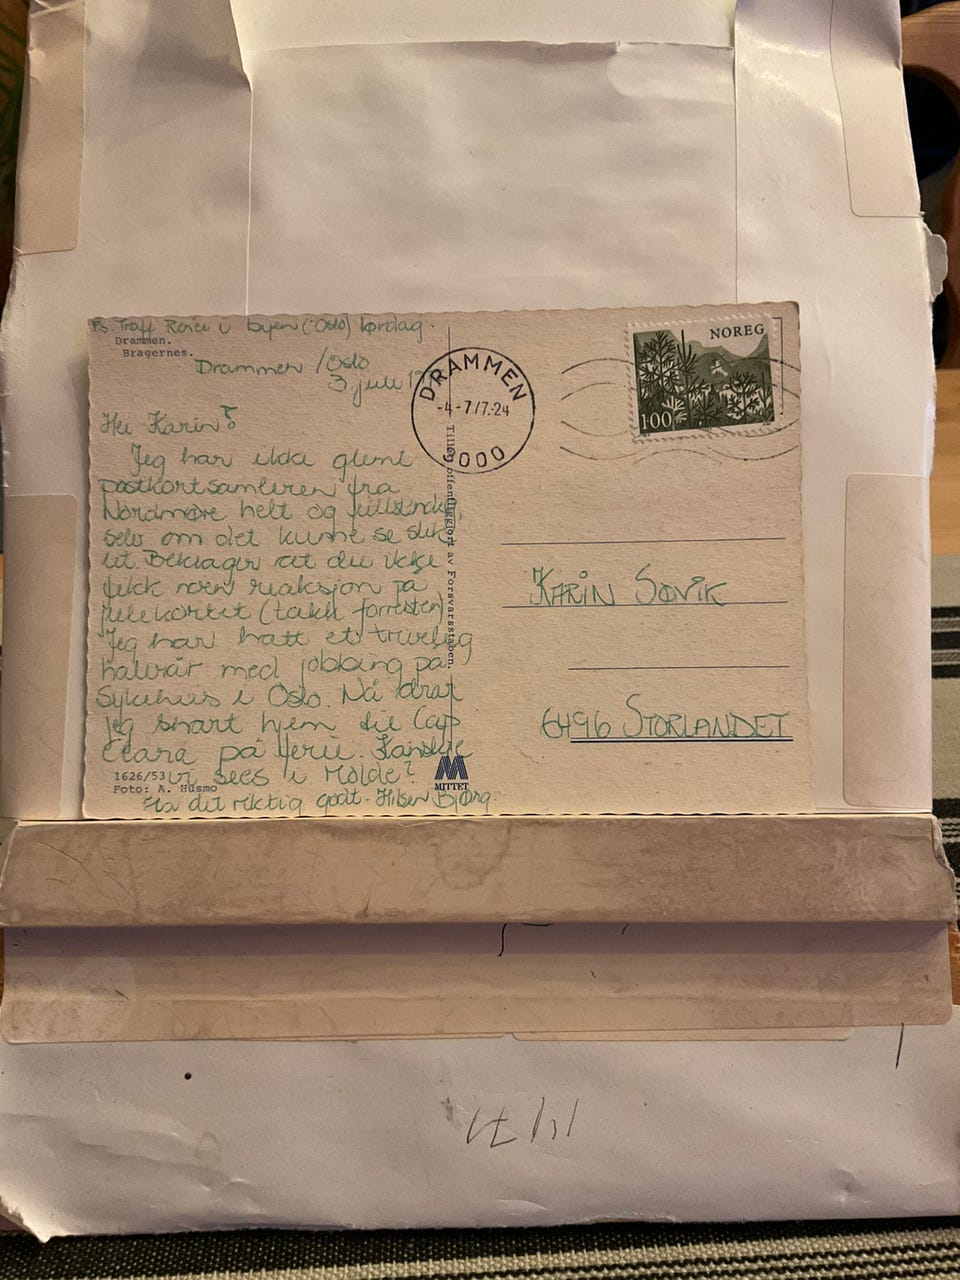 Ps. Traff Renée i byen (Oslo) lørdag.
Drammen.
Bragernes.
Drammen / Oslo
3 juli
Hei Karin!
Jeg har ikke glemt
postkortsamleren fra
Nordmøre helt og fullstendig,
selv om det kunne se slik
ut. Beklager at du ikke
fikk noen reaksjon på
julekortet (takk forresten)
Jeg har hatt et trivelig
halvår med jobbing på
Sykehus i Oslo. Nå drar
jeg snart hjem til Cap
Clara på ferie. Kanskje
vi sees i Molde?
Ha det riktig godt. Hilsen Bjørg.
1626/53
Foto: A. Husmo
MITTET
offentliggjort av Forsvarsstaben.
DRAMMEN
-4-7/7-24
000
NOREG
100
KARIN SØVIK
6496 STORLANDET